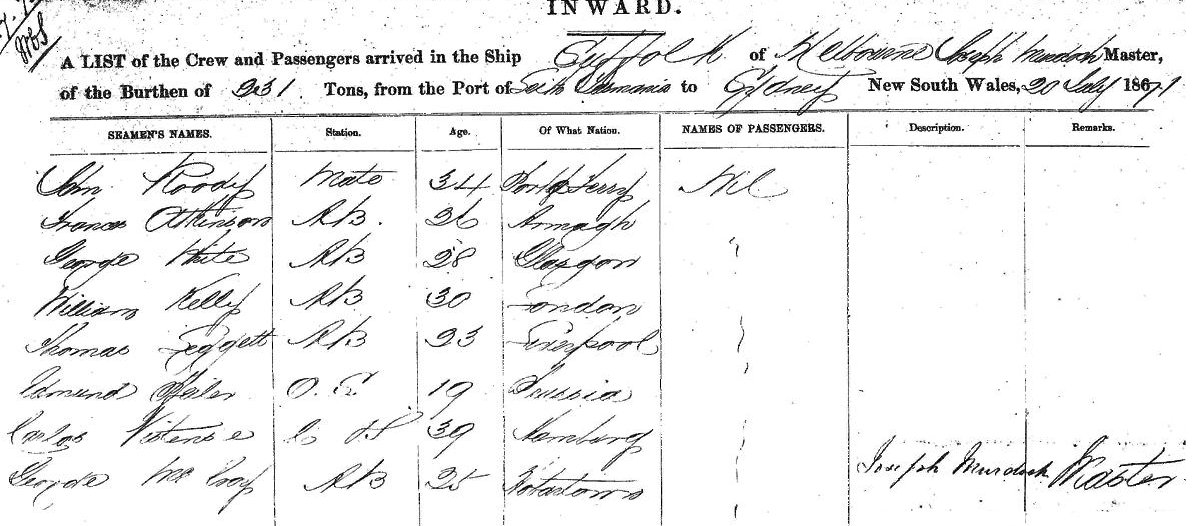 INWARD.
A LIST of the Crew and Passengers arrived in the Ship Suffolk of Melbourne Joseph Murdoch Master,
of the Burthen of 231 Tons, from the Port of Tasmania to Sydney New South Wales, 20 July 1871
SEAMEN'S NAMES. Station. Age. Of What Nation. NAMES OF PASSENGERS. Description. Remarks.
John Mate 34 Nil
Francis Atkinson AB. 26 Armagh
George White AB 28 Glasgow
William Kelly AB 30 London
Thomas Leggett AB 23 Liverpool
Edmund O.S. 19 Prussia
Carlos C &S 39 Hamburg
George McCoy AB 25 Hobartown Joseph Murdoch Master